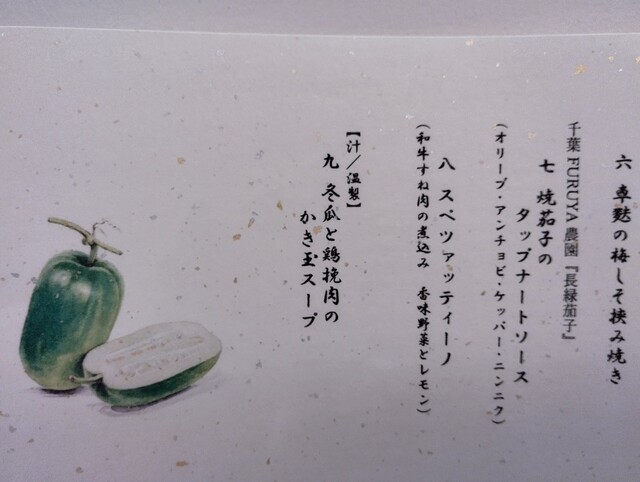 六 車麩の梅しそ挟み焼き
千葉 FURUYA 農園『長緑茄子』
七 焼茄子の
タップナートソース
(オリーブ・アンチョビ・ケッパー・ニンニク)
八 スペツァッティーノ
(和牛すね肉の煮込み 香味野菜とレモン)
【汁/温製】
九 冬瓜と鶏挽肉の
かき玉スープ